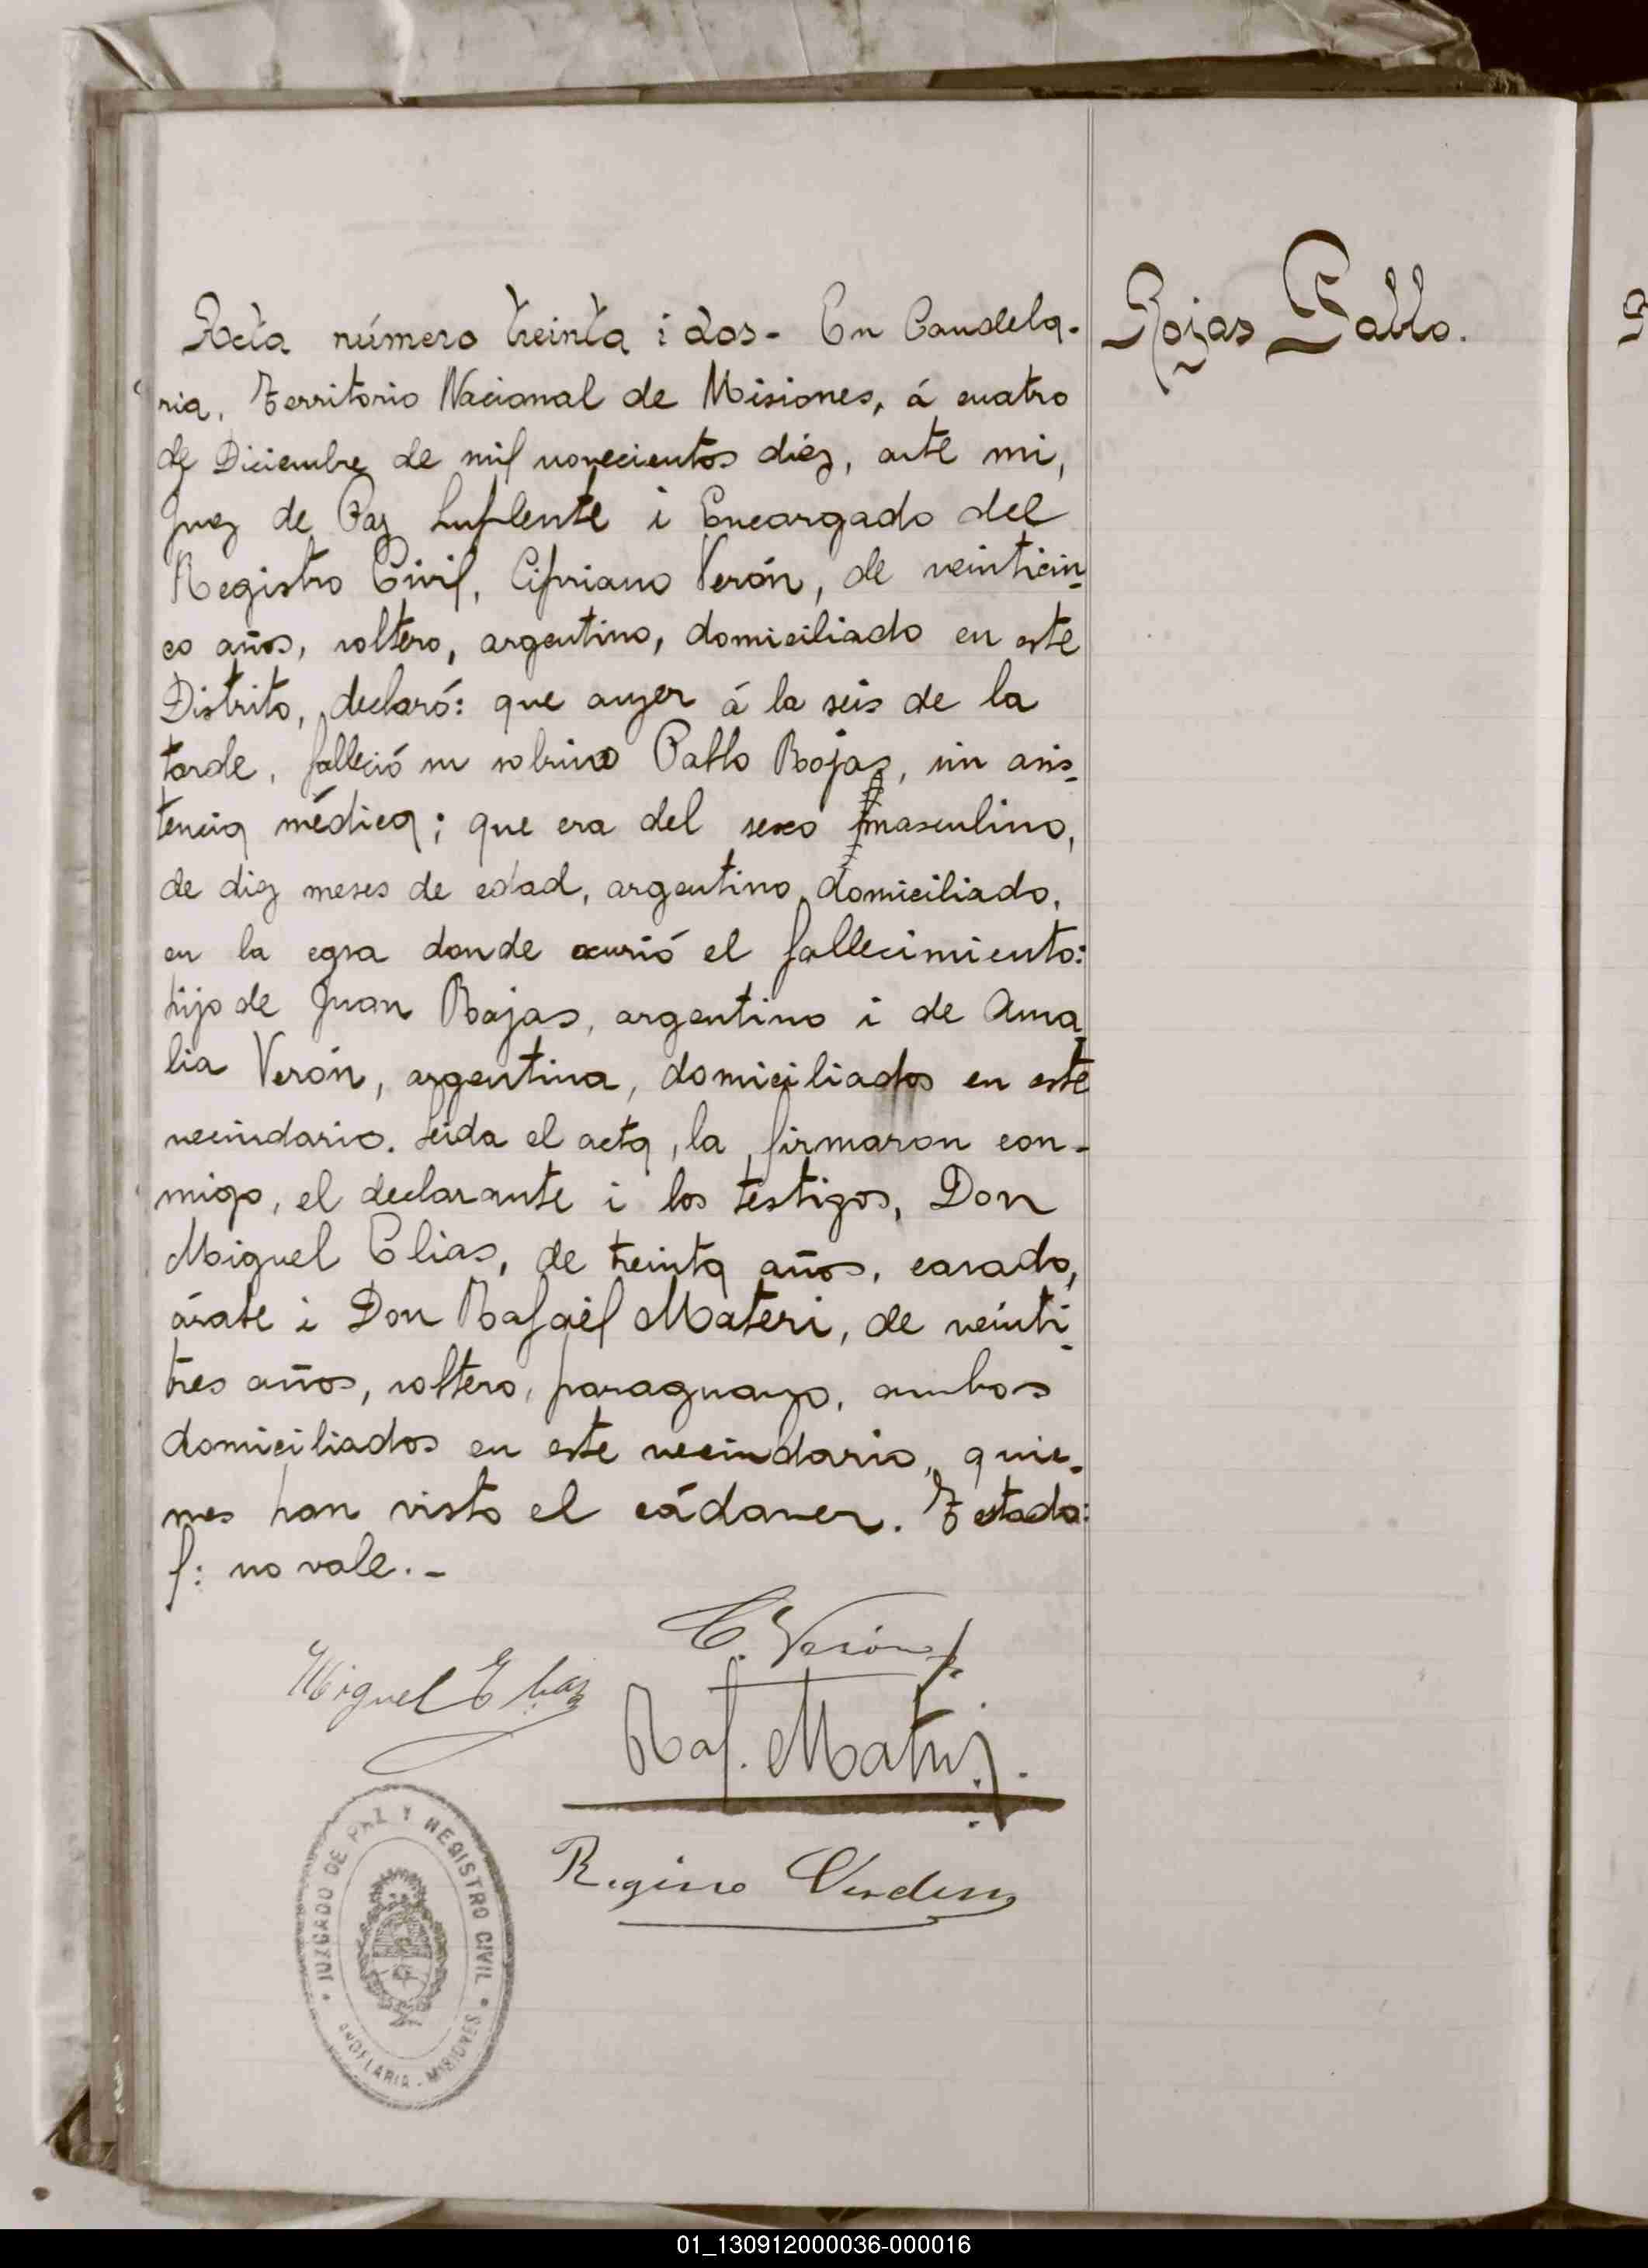 Acta número treinta i dos- En Candela-
ria, Territorio Nacional de Misiones, á cuatro
de Diciembre de mil novecientos diez, ante mi,
Juez de Paz Suplente i Encargado del
Registro Civil, Cipriano Verón, de veinticin-
co años, soltero, argentino, domiciliado en este
Distrito, declaró: que ayer á la seis de la
tarde, falleció su sobrino Pablo Rojas, sin asis-
tencia médica; que era del sexo masculino,
de diez meses de edad, argentino, domiciliado,
en la casa donde ocurió el fallecimiento:
hijo de Juan Rojas, argentino i de Ama-
lia Verón, argentina, domiciliados en este
vecindario. Leida el acta, la firmaron con-
migo, el declarante i los testigos, Don
Miguel Elias, de treinta años, casado,
árabe i Don Rafael Materi, de veinti-
tres años, soltero, paraguayo, ambos
domiciliados en este vecindario, quie-
nes han visto el cádaver. Testado:
f: no vale.-
Rojas Pablo.
C. Verón
Miguel Elias
Raf. Materi.
Regino
JUZGADO DE PAZ Y REGISTRO CIVIL
ANDELARIA - MISIONES
01_130912000036-000016